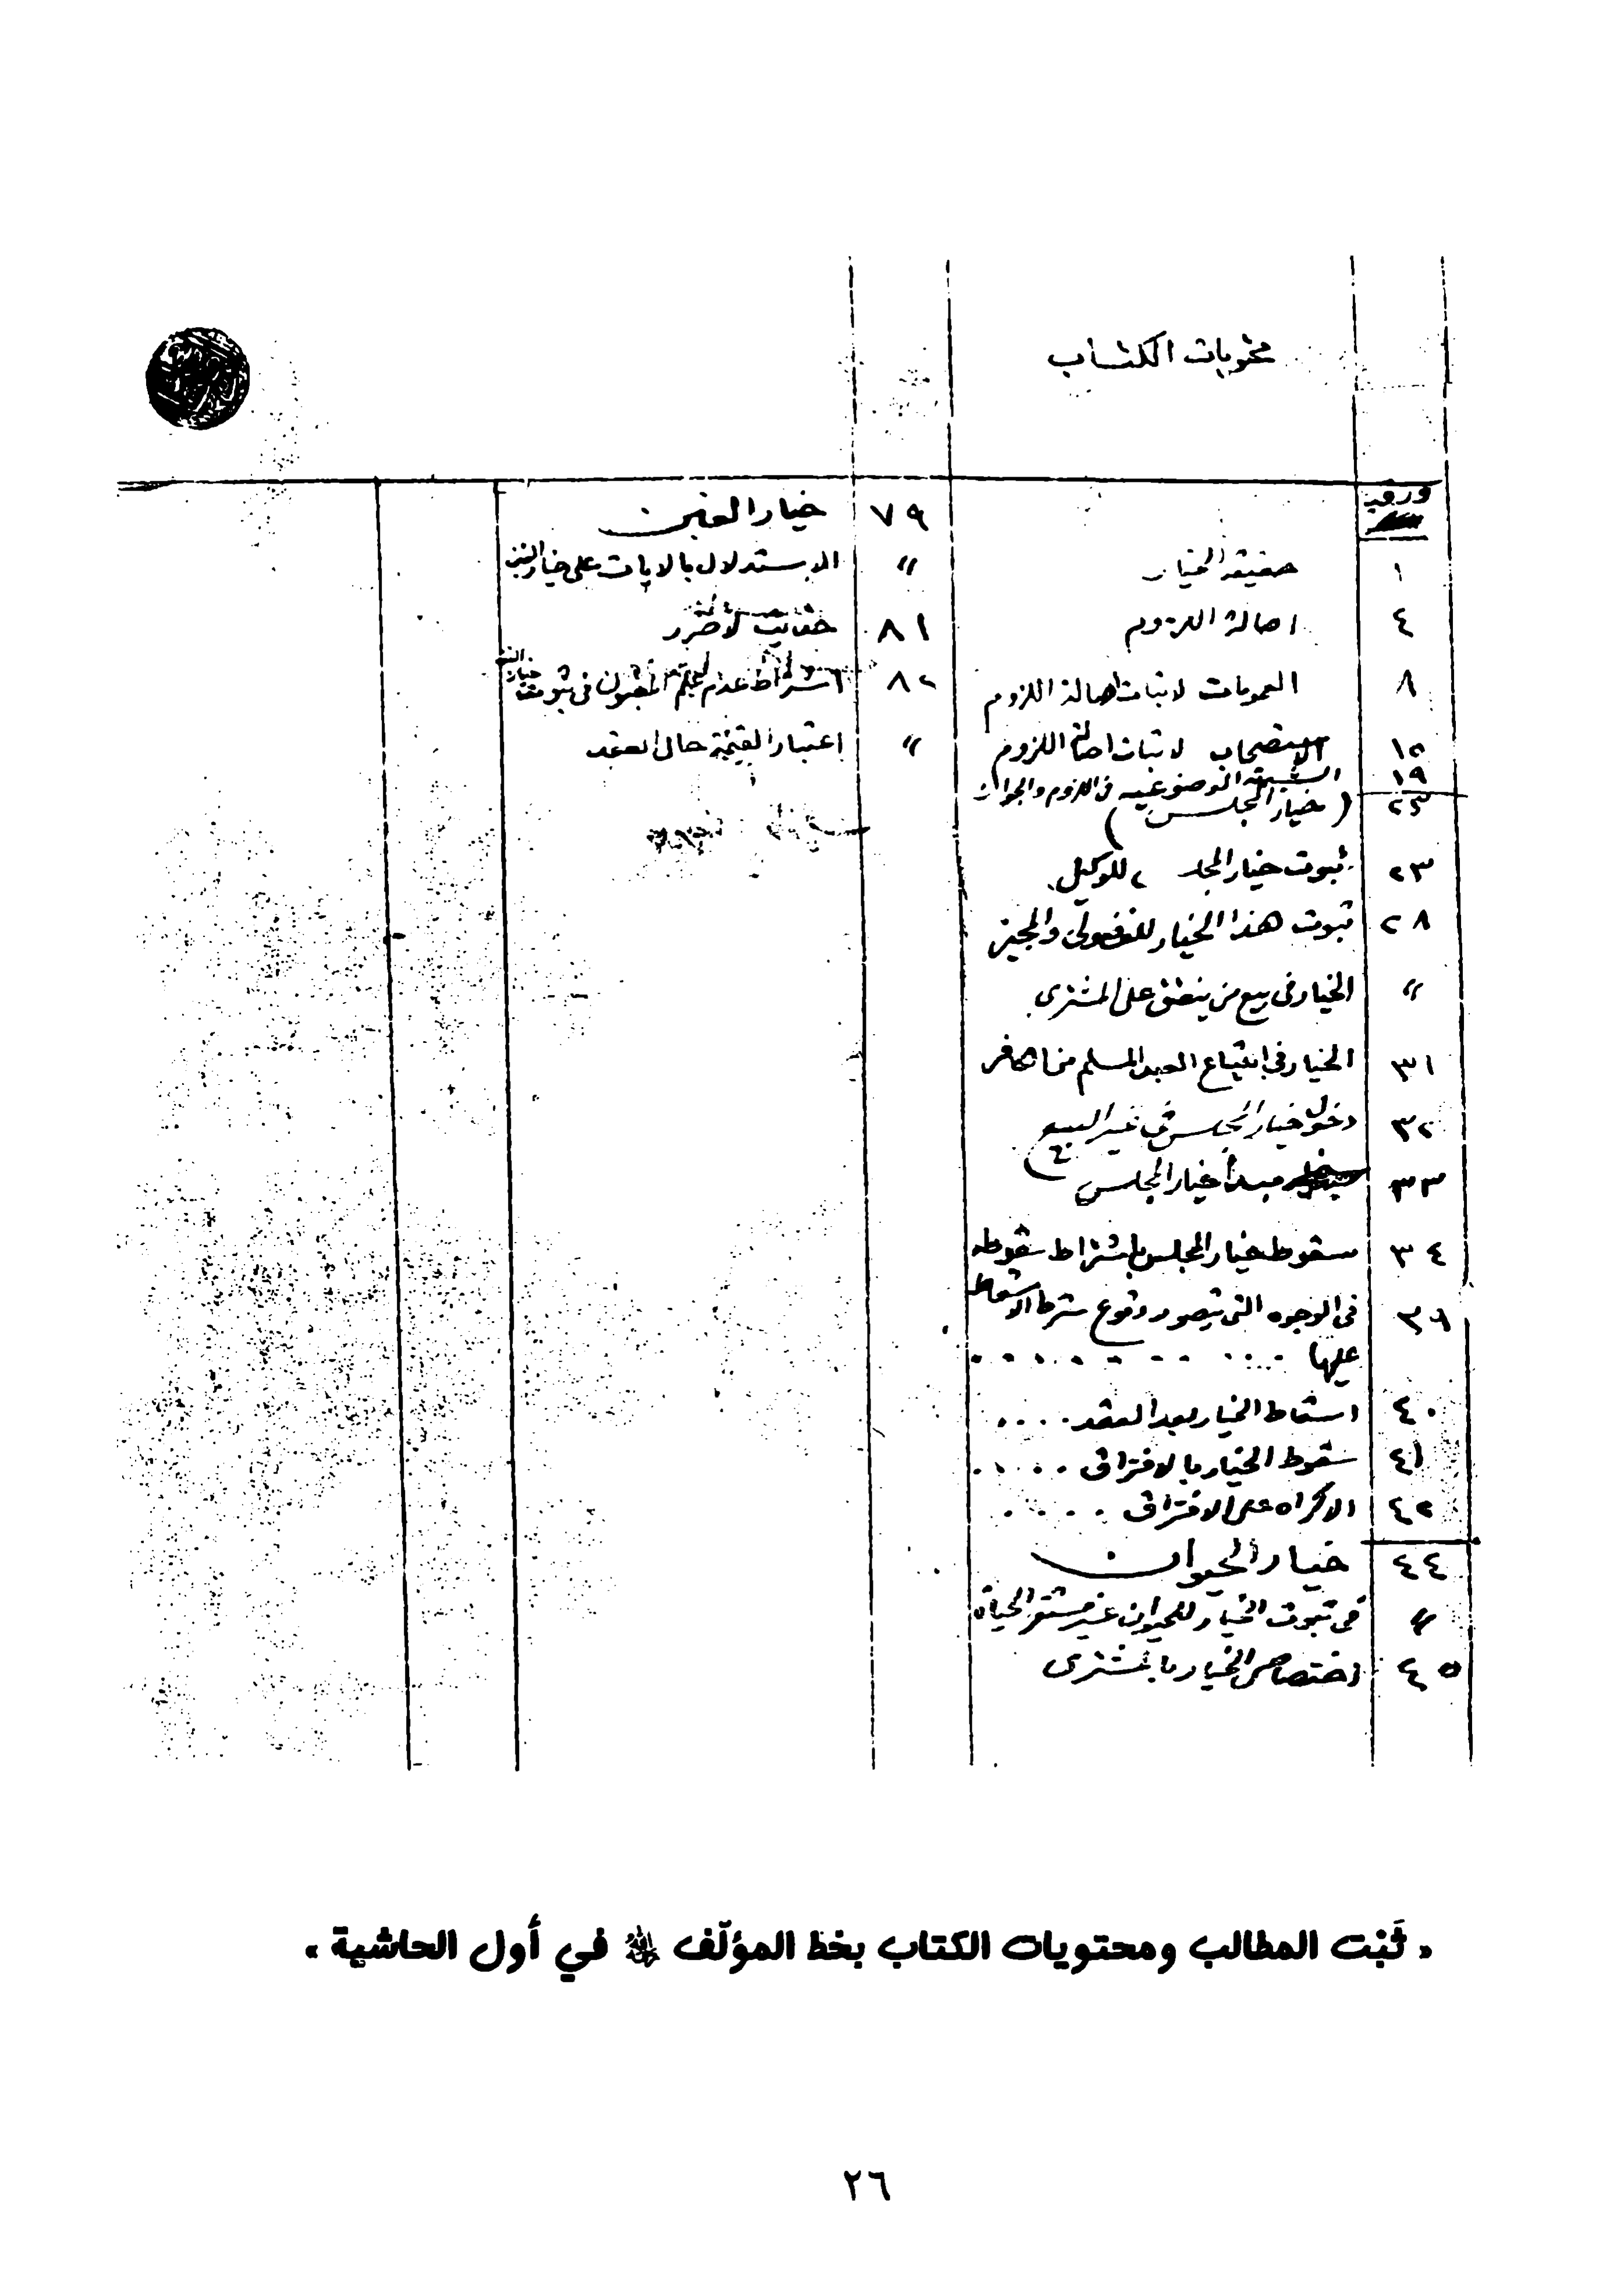 محتويات الكتاب
ورقه
١ حقيقة الخيار
٤ اصالة اللزوم
٨ العمومات لاثبات اصالة اللزوم
١٥ الاستصحاب لاثبات اصالة اللزوم
١٩ الشبهة الموضوعية فى اللزوم والجواز
٢٣ (خيار المجلس)
٢٣ ثبوت خيار المجلس للوكيل
٢٨ ثبوت هذا الخيار للفضولى والمجيز
〃 الخيار فى بيع من ينعتق على المشترى
٣١ الخيار فى ابتياع العبد المسلم من الكافر
٣٢ دخول خيار المجلس فى غير البيع
٣٣ مبدأ خيار المجلس
٣٤ سقوط خيار المجلس باشتراط سقوطه
٣٦ فى الوجوه التى يتصور وقوع شرط الاسقاط
عليها
٤٠ اسقاط الخيار بعد العقد
٤١ سقوط الخيار بالافتراق
٤٢ الاكراه على الافتراق
٤٤ خيار الحيوان
〃 فى ثبوت الخيار للحيوان غير مستقر الحياة
٤٥ اختصاص الخيار بالمشترى
٧٩ خيار الغبن
〃 الاستدلال بالايات على خيار الغبن
٨١ حديث لا ضرر
٨٢ اشتراط عدم علم المغبون فى ثبوت خيار الغبن
〃 اعتبار القيمة حال العقد
« ثَبْت المطالب ومحتويات الكتاب بخط المؤلّف ﷲ في أول الحاشية »
٢٦